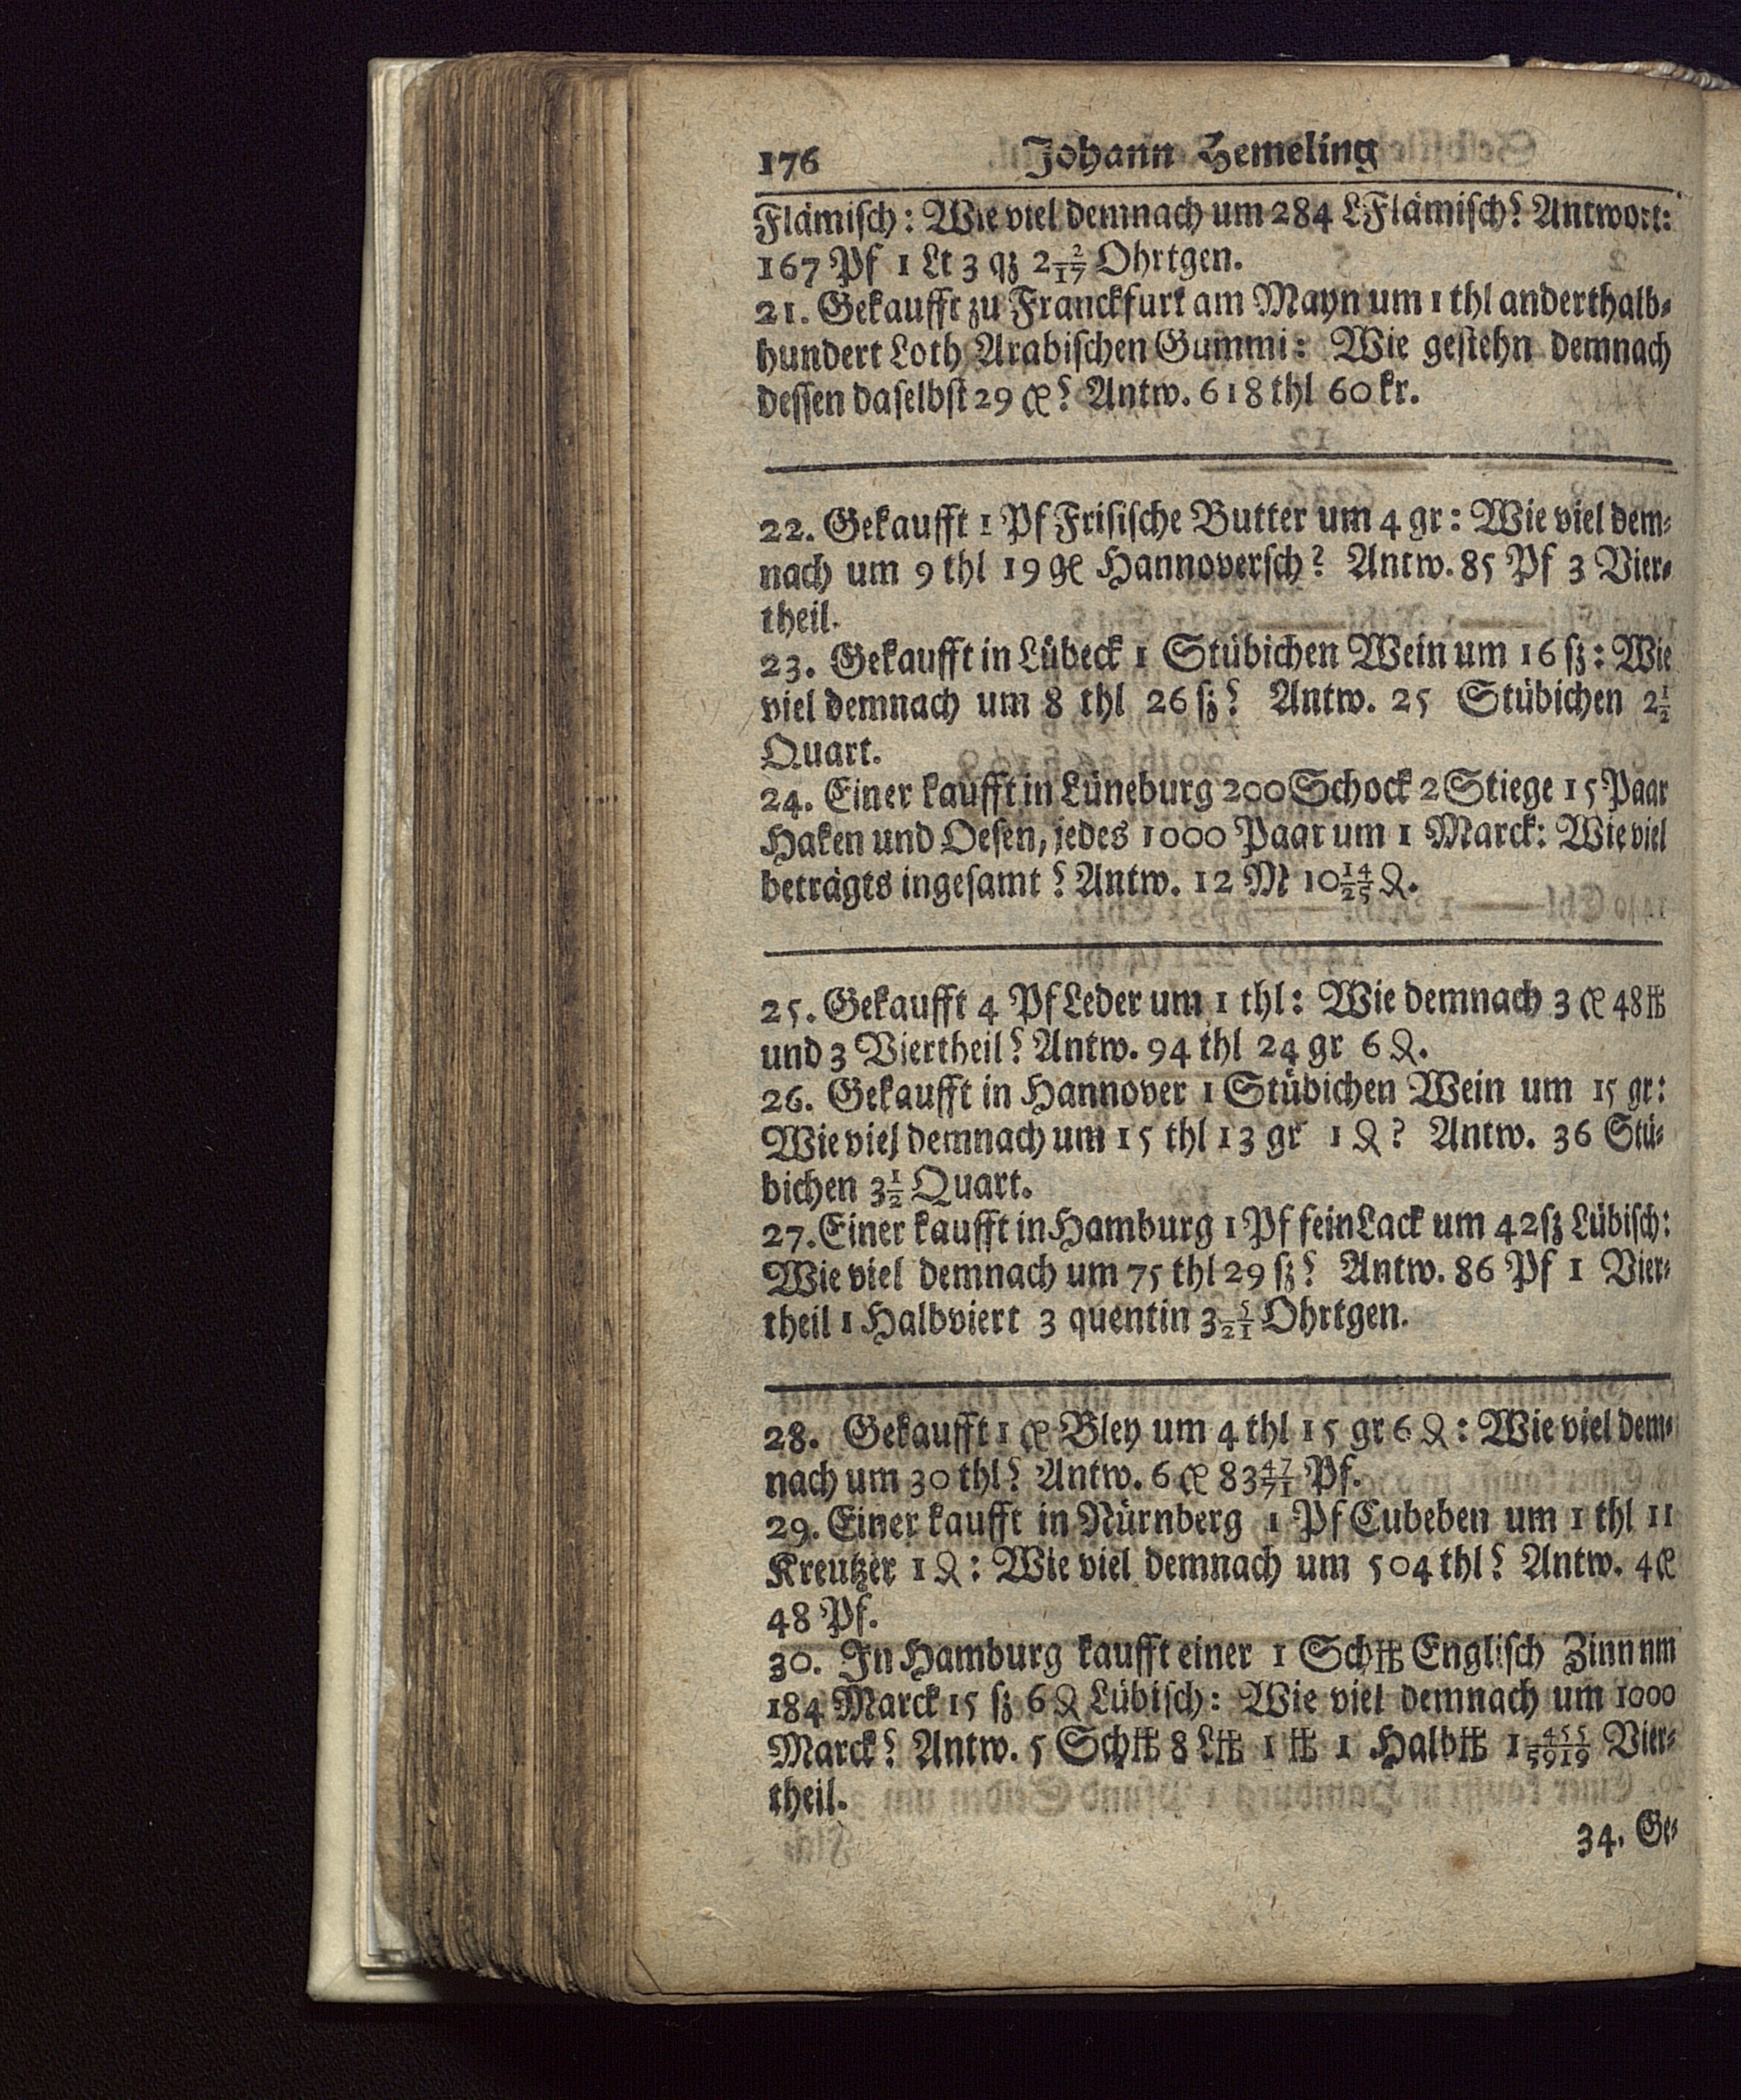 176 Johann Hemeling
Flämisch: Wie viel demnach um 284 L Flämisch? Antwort:
167 Pf 1 Lt 3 qz 2 2/17 Ohrtgen.
21. Gekaufft zu Franckfurt am Mayn um 1 thl anderthalb-
hundert Loth Arabischen Gummi: Wie gestehn demnach
dessen daselbst 29 ꝶ? Antw. 618 thl 60 kr.
22. Gekaufft 1 Pf Frisische Butter um 4 gr: Wie viel dem-
nach um 9 thl 19 gl Hannoversch? Antw. 85 Pf 3 Vier-
theil.
23. Gekaufft in Lübeck 1 Stübichen Wein um 16 ß: Wie
viel demnach um 8 thl 26 ß? Antw. 25 Stübichen 2 1/2
Quart.
24. Einer kaufft in Lüneburg 200 Schock 2 Stiege 15 Paar
Haken und Oesen, jedes 1000 Paar um 1 Marck: Wie viel
beträgts ingesamt? Antw. 12 M 10 14/25 ₰.
25. Gekaufft 4 Pf Leder um 1 thl: Wie demnach 3 ꝶ 48 ℔
und 3 Viertheil? Antw. 94 thl 24 gr 6 ₰.
26. Gekaufft in Hannover 1 Stübichen Wein um 15 gr:
Wie viel demnach um 15 thl 13 gr 1 ₰? Antw. 36 Stü-
bichen 3 1/2 Quart.
27. Einer kaufft in Hamburg 1 Pf fein Lack um 42 ß Lübisch:
Wie viel demnach um 75 thl 29 ß? Antw. 86 Pf 1 Vier-
theil 1 Halbviert 3 quentin 3 5/21 Ohrtgen.
28. Gekaufft 1 ꝶ Bley um 4 thl 15 gr 6 ₰: Wie viel dem-
nach um 30 thl? Antw. 6 ꝶ 83 47/71 Pf.
29. Einer kaufft in Nürnberg 1 Pf Cubeben um 1 thl 11
Kreutzer 1 ₰: Wie viel demnach um 504 thl? Antw. 4 ꝶ
48 Pf.
30. In Hamburg kaufft einer 1 Sch℔ Englisch Zinn nm
184 Marck 15 ß 6 ₰ Lübisch: Wie viel demnach um 1000
Marck? Antw. 5 Sch℔ 8 L℔ 1 ℔ 1 Halb℔ 1 455/5919 Vier-
theil.
34. Ge-